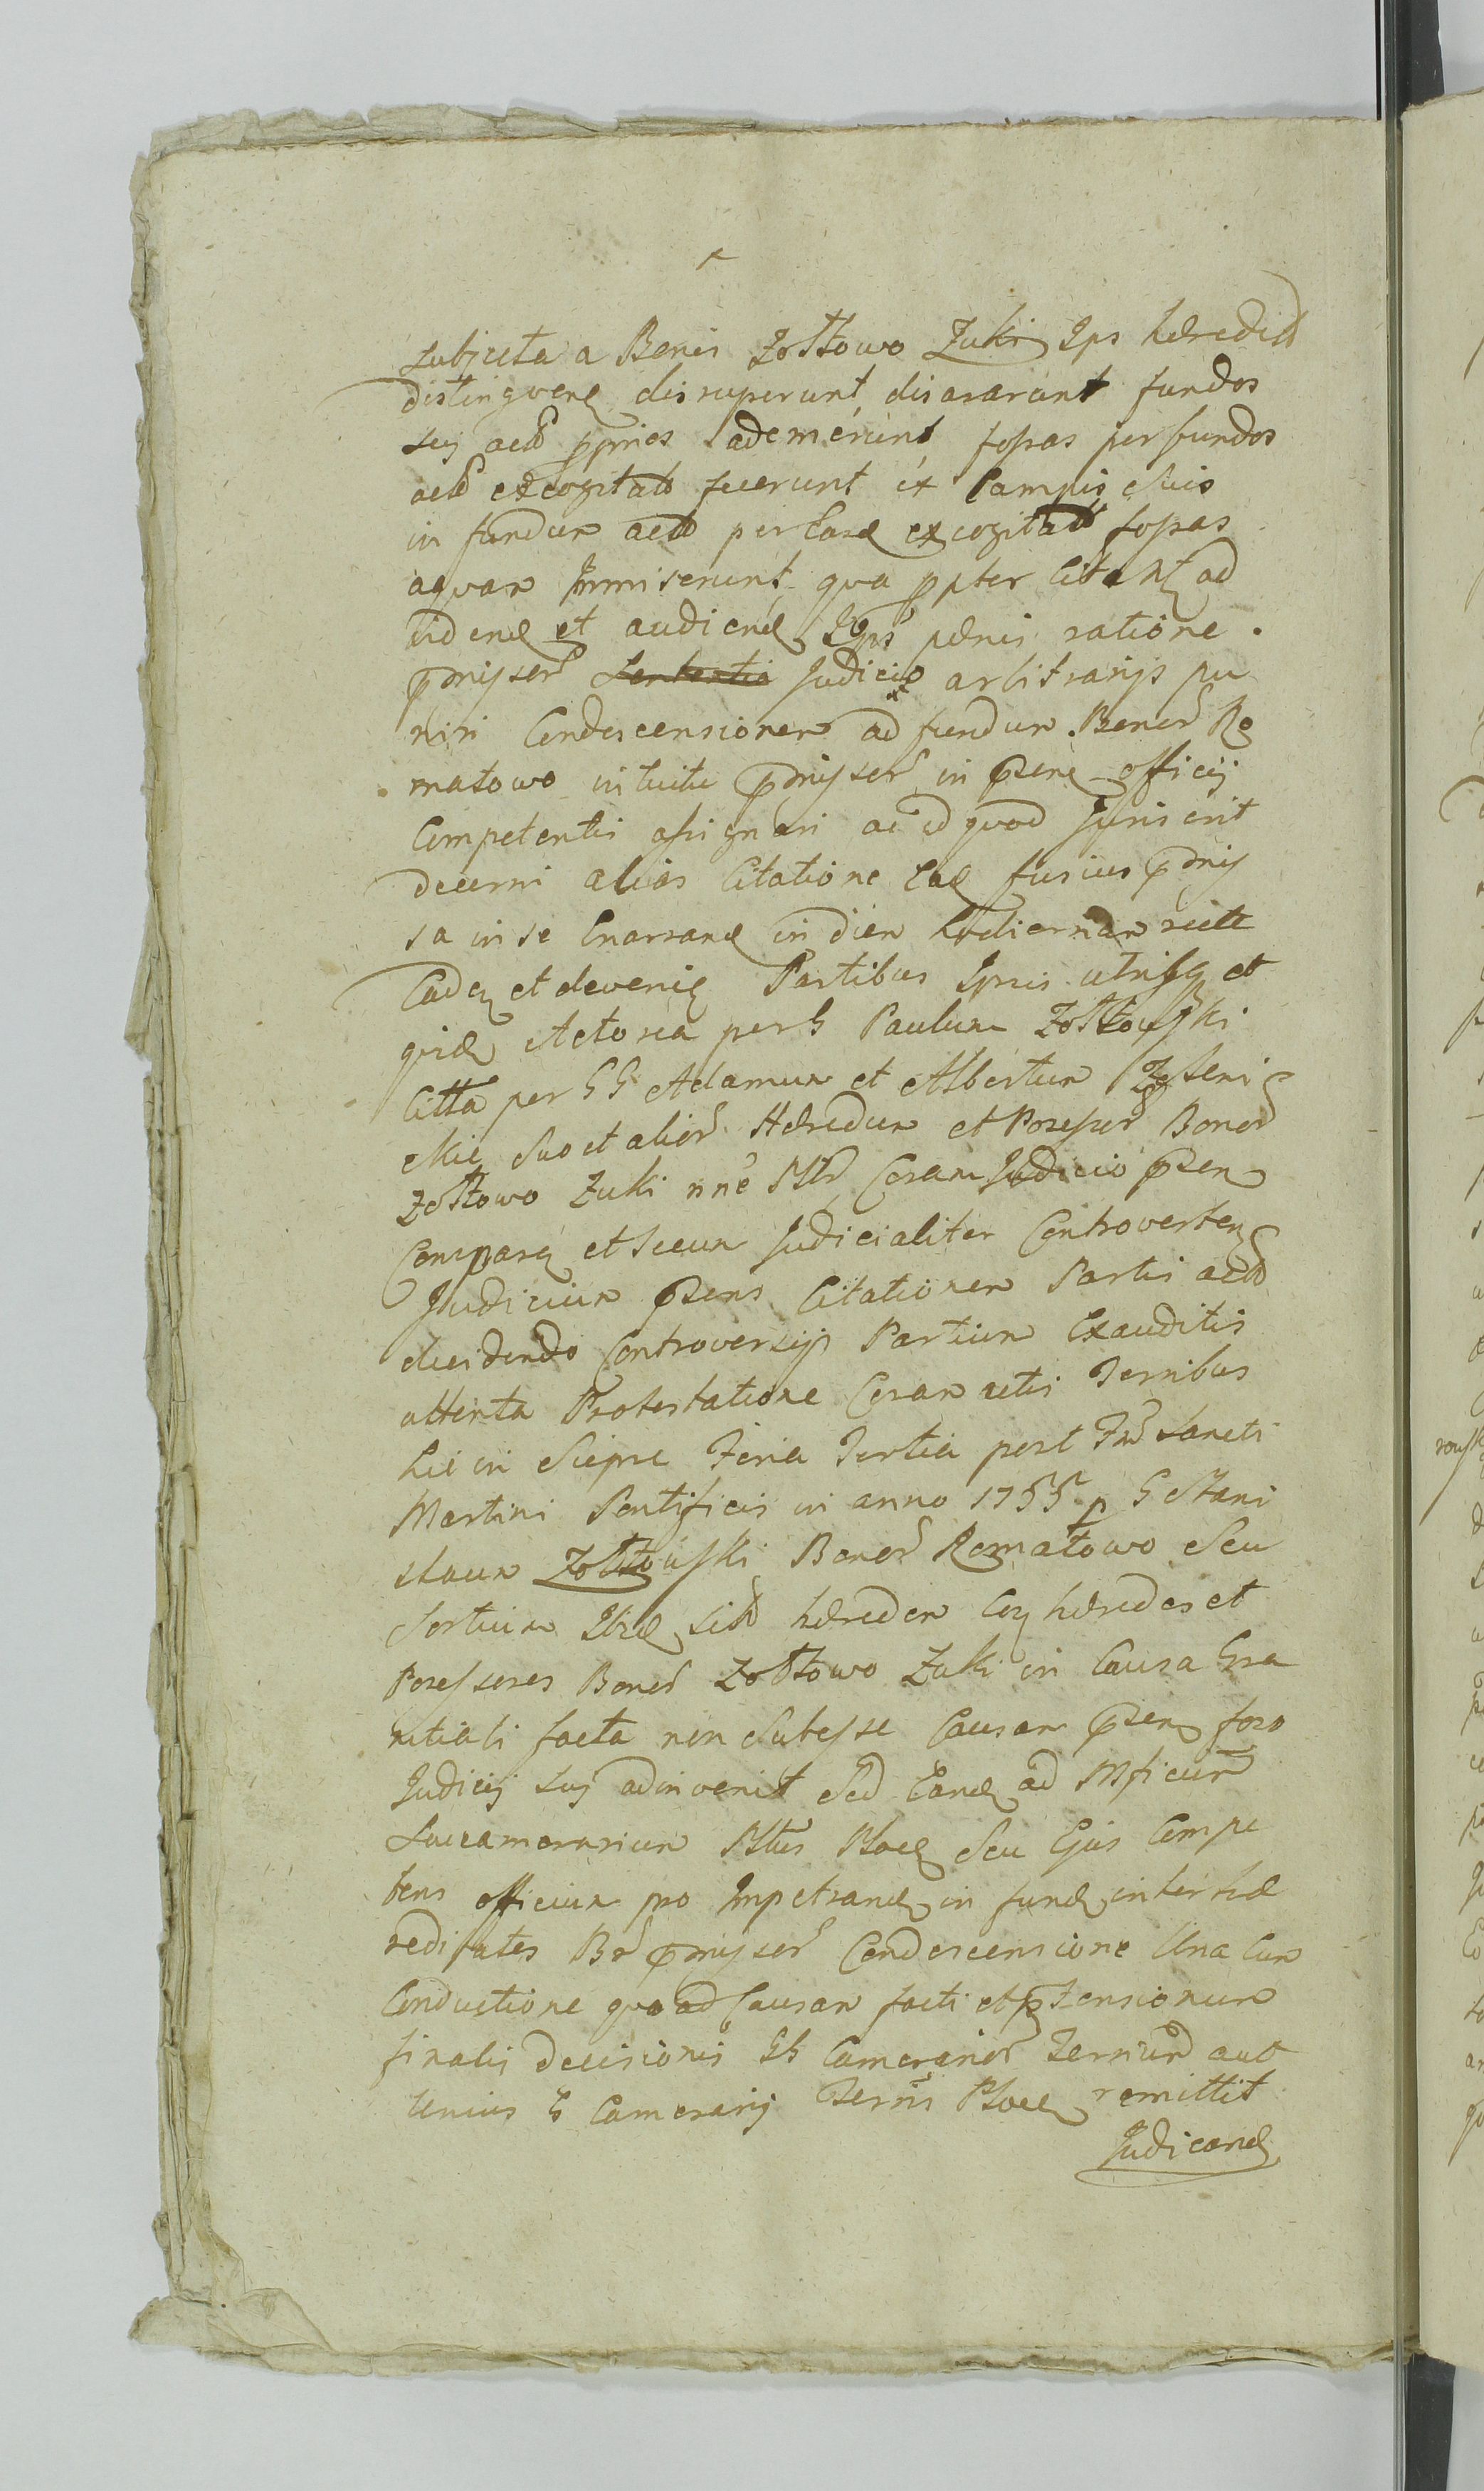 subjecta a Bonis Zołtowo Żuki Ips hæredit
distingvend disruperunt, disararunt fundos
suj actt ppries ademerunt fossas per fundos
actt excogitatt fecerunt ex Campis Suis
in fundum actt per Easd excogitatt fossas
aqvam Immiserunt qva ppter Citant ad
vidend et audiend Ipos pænis ratione
pmissor Sententia Judicio arbitrarijs pu
niri Condescensionem ad fundum Bonor Ro
matowo intuitu pmissor in psene officij
Competentis assignari ac id qvod Juris erit
decerni alias Citatione Ead fusius pmis
sa in se Enarrand in diem hodiernam recte
Caden et devenien Partibus Ipsis utrisq et
qvid Actorea per G Paulum Zołtowski
Citta per GG Adamum et Albertum
Suo et alior Hæredum et Possessor Bonor
Zołtowo Żuki nne Coram Judicio psen
Comparen et Secum Judicialiter Controverten
Judicium psens Citationem Partis actt
decidendo Controversijs Partium Exauditis
attenta Protestatione Coram actis Terribus
hic in Sierpc Feria Tertia post Fm Sancti
Martini Pontificis in anno 1755 p G Stani
slaum Zołtowski Bonor Romatowo Seu
Sortium Ibid sitt hæredem Con hæredes et
Possessores Bonor Zołtowo Żuki in Causa Gra
nitiali facta non Subesse Causam psen foro
Judicij suj adinvenit Sed Eand ad Mficum
Succamerarium Pltus Plocen Seu Ejus Compe
tens officium pro Impetrand in fund inter hæ
reditates Br pmissor Condescensione Una Cum
Conductione qvoad Causam facti et ptensionum
finalis decisionis GG Camerarior Terrium aut
Unius G Camerarij Terris Plocen remittit
Judicand